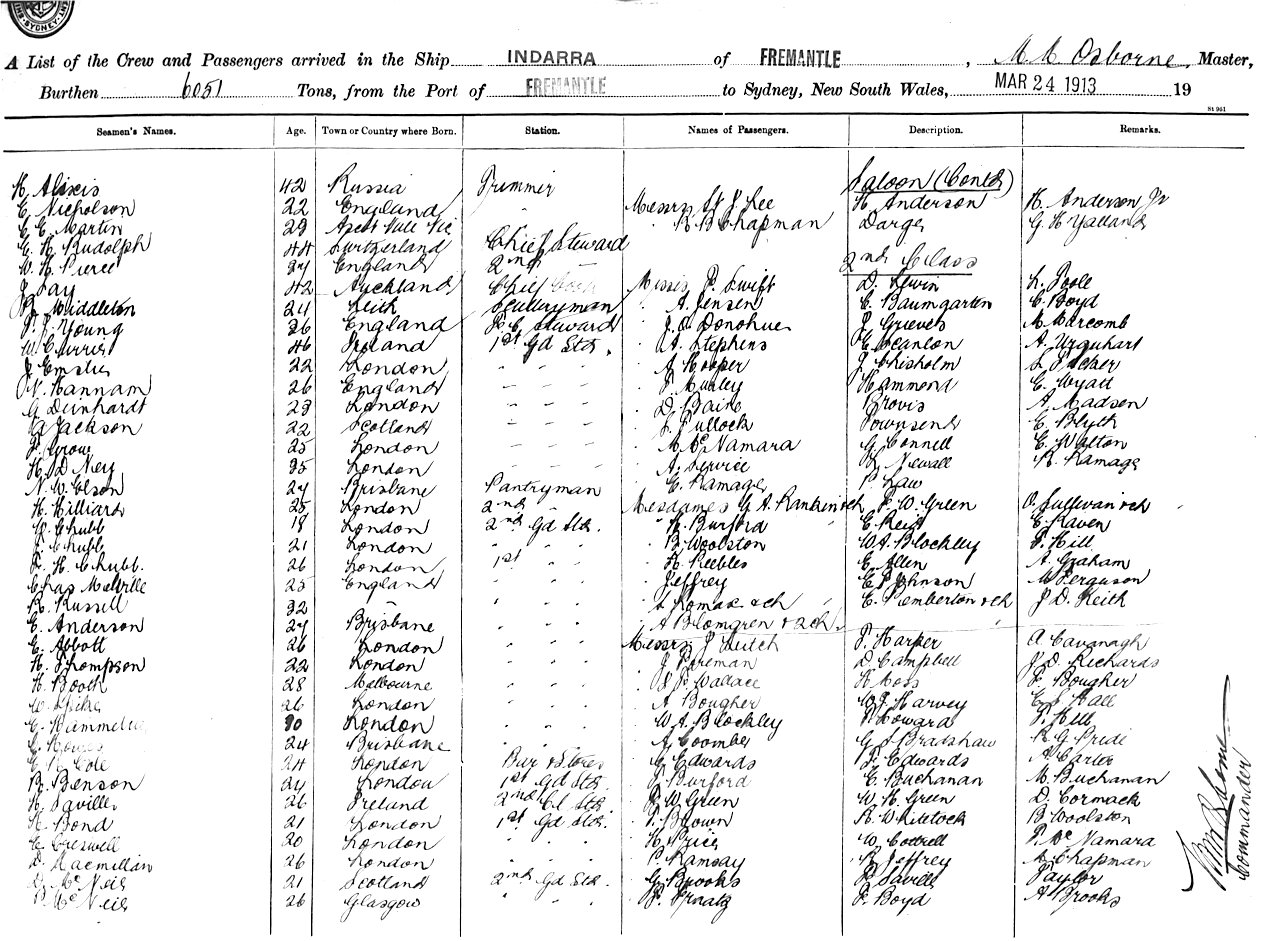 SYDNEY
A List of the Crew and Passengers arrived in the Ship INDARRA of FREMANTLE, M M Osborne, Master,
Burthen 6051 Tons, from the Port of FREMANTLE to Sydney, New South Wales, MAR 24 1913 19
St 961
Seamen's Names. Age. Town or Country where Born. Station. Names of Passengers. Description. Remarks.
Saloon (Contd)
H. Alixis 42 Russia Trimmer
E. Nicholson 22 England " Messrs Lee H. Anderson H. Anderson Jr
C. E. Martin 29 Vic " R B Chapman Darge G. H Yalland
E. H. Rudolph 44 Switzerland Chief Steward
W. H. Pierce 37 England 2nd 2nd Class
J. Lay 42 Auckland Chief Cook Misses P. Swift D. Lewin L. Poole
Middleton 24 Leith Sculleryman " A. Jensen C. Baumgarten C. Boyd
Young 26 England Steward " J. O'Donohue J. Grieves M. Marcomb
W. Currie 46 Ireland 1st Gd Std. " A. Stephens E. Scanlon A. Urquhart
J. Emslie 22 London " " " " A Hooper J. Chisholm
N. Hannam 26 England " " " " Hurley Hammond C. Wyatt
G. Deinhardt 29 London " " " " D. Baine Provis A. Madson
A. Jackson 22 Scotland " " " " J. Pullock Townsend E. Blyth
25 London " " " " M. McNamara G. Connell E. Walton
H. D. Ney 35 London " A. Service Newall R. Ramage
N. W. Olson 27 Brisbane Pantryman " E. Ramage P. Law
H. Hilliard 25 London 2nd " Mesdames G. A. Rankin & ch F. W. Green O'Sullivan & ch
W. Chubb 18 London 2nd Gd Std. " H. Burford E. Reid E Raven
J. Chubb 21 London " " " B. Woolston W A. Blockley F. Hill
H. Chubb. 26 London 1st " " " H. Peebles E. Allen A. Graham
Chas Melville 25 England " " " Jeffrey E. Johnson M. Ferguson
R. Russell 32 " " " " Lomax & ch E. Pemberton & ch J. D. Keith
E. Anderson 27 Brisbane " " " A Blomgren & 2 ch.
E. Abbott 26 London " " " Messrs J Leitch F. Harper A. Cavanagh
H. Thompson 22 London " " " J. Foreman D. Campbell J. D. Richards
H. Booth 28 Melbourne " " " Wallace H Moss F. Bougher
26 London " " " A Bougher Harvey Hall
London " " " W. A. Blockley Howard F. Hill
24 Brisbane " " " A Coomber Bradshaw R. G Pride
Cole 24 London Bar & Stores " G Edwards F. Edwards A Carter
B. Benson 24 London 1st Gd Std. " Burford E. Buchanan M. Buchanan
H. Saville 26 Ireland 2nd Cl Std. " F. W Green W. H. Green D. Cormack
H. Bond 21 London 1st Gd Std. " Brown R. Whittock B Woolston
C. Creswell 20 London " " " H. Price W. Cottrell F. McNamara
D. Macmillan 26 London " " " P. Ramsay R. Jeffrey A. Chapman
McNeil 21 Scotland 2nd Gd Std. " G. Brooks Saville Taylor
McNeil 26 Glasgow " " " F. Boyd A Brooks
Commander